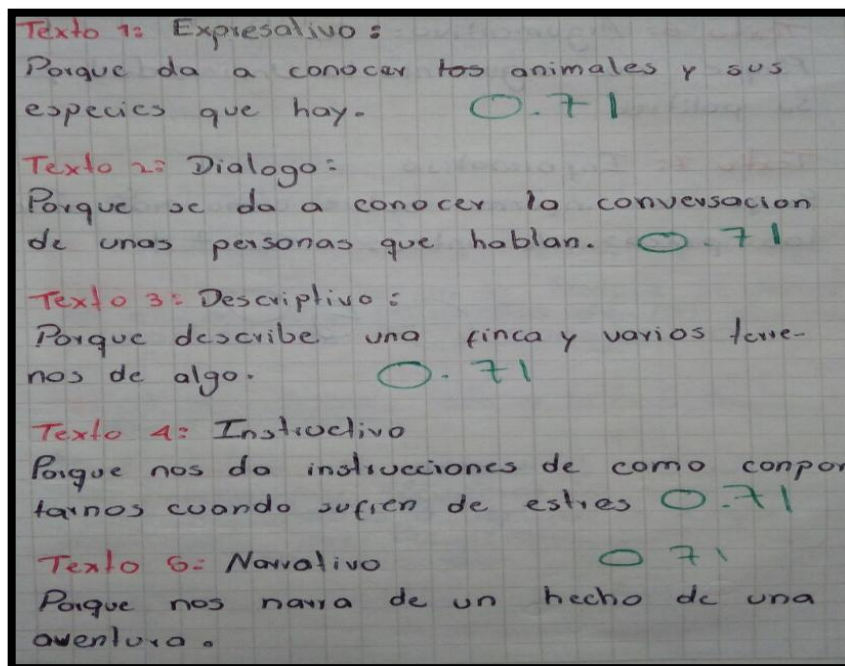 Texto 1: Expresalivo:
Porque da a conocer los animales y sus
especies que hay. 0.71
Texto 2: Dialogo:
Porque se da a conocer la conversacion
de unas personas que hablan. 0 71
Texto 3: Descriptivo:
Porque describe una finca y varios terre-
nos de algo. 0. 71
Texto 4: Instructivo
Porque nos da instrucciones de como conpor
tarnos cuando sufren de estres 0.71
Texto 5: Narrativo 0 71
Porque nos narra de un hecho de una
aventura.